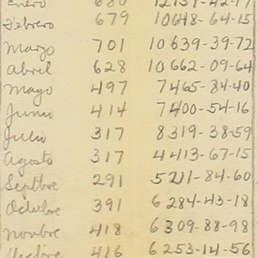 Enero 680 12131-42-17
Febrero 679 10648-64-15
Marzo 701 10639-39-72
Abril 628 10662-09-64
Mayo 497 7465-84-40
Junio 414 7400-54-16
Julio 317 8319-38-59
Agosto 317 4413-67-15
Septbre 291 5211-84-60
Octubre 391 6284-43-18
Novbre 418 6309-88-98
416 6253-14-56